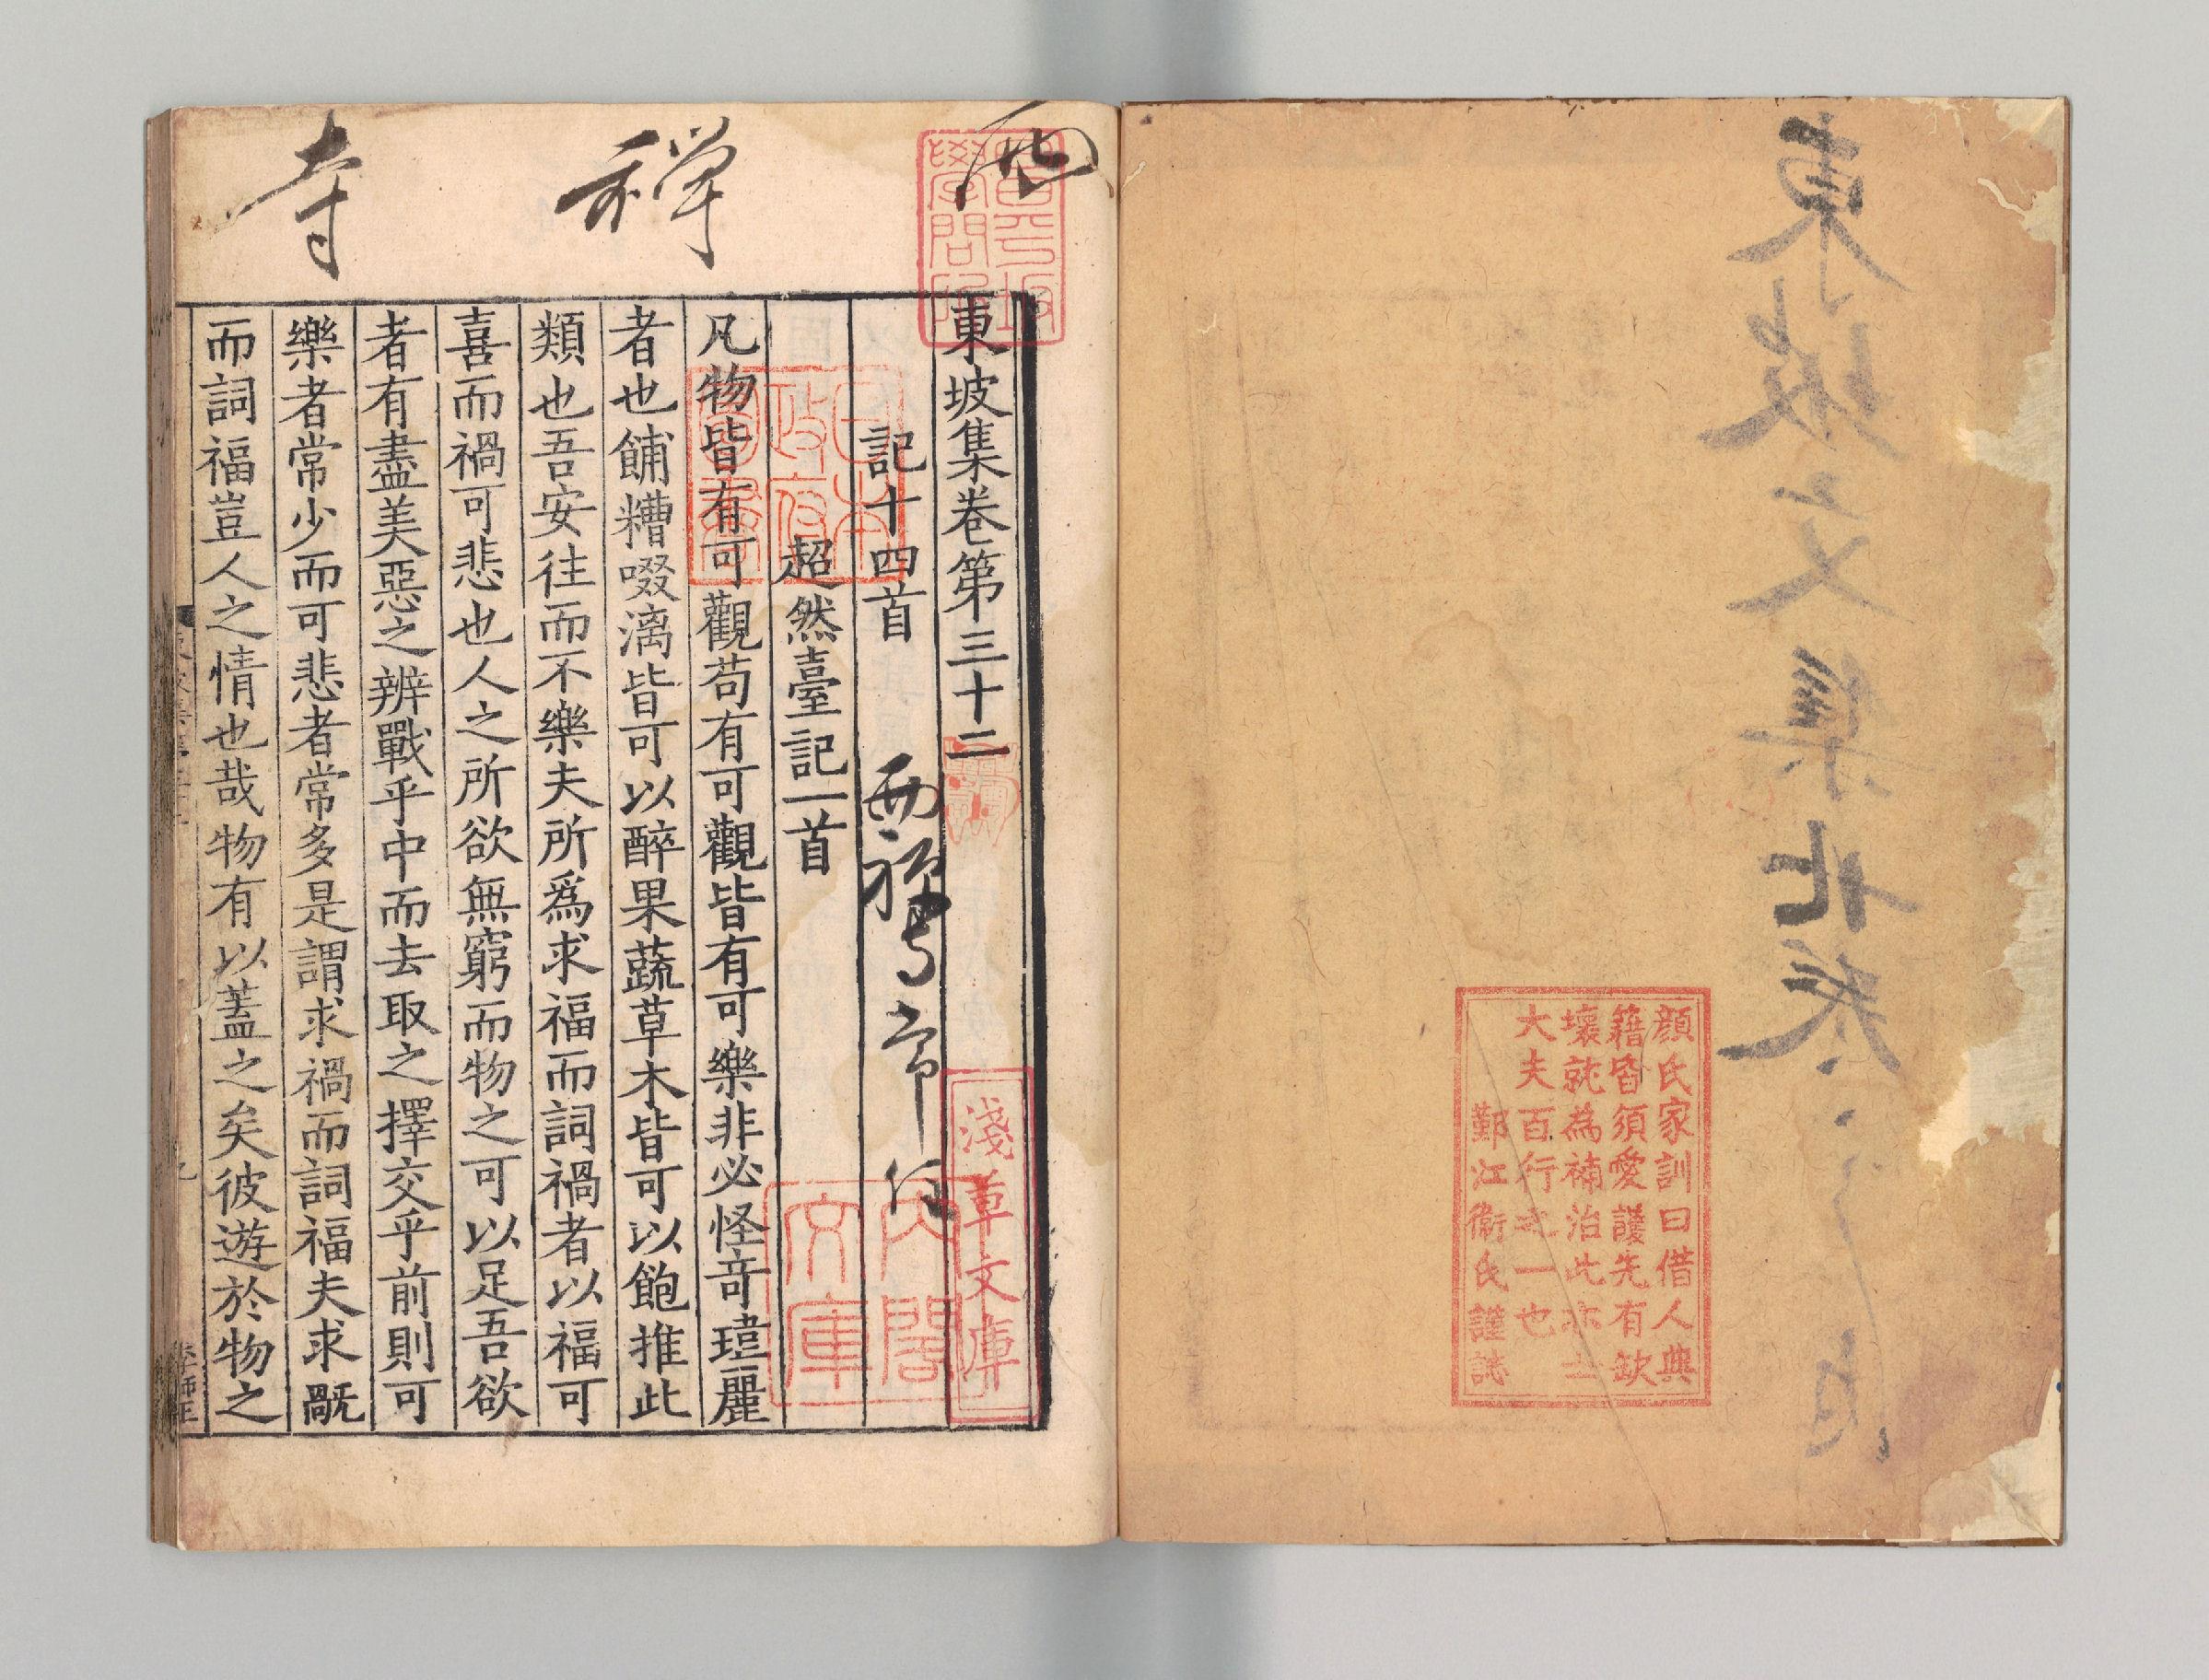 顔氏家訓曰借人典
籍皆須愛護先有缺
壞就為補治此亦士
大夫百行之一也
鄞江衞氏謹誌
西
禪
寺
昌平坂
學問所
東坡集卷第三十二
淺草文庫
記十四首
西禪寺常住
日本
政府
圖書
內閣
文庫
超然臺記一首
凡物皆有可觀苟有可觀皆有可樂非必怪竒瑋麗
者也餔糟啜漓皆可以醉果蔬草木皆可以飽推此
類也吾安往而不樂夫所爲求福而詞禍者以福可
喜而禍可悲也人之所欲無窮而物之可以足吾欲
者有盡美惡之辨戰乎中而去取之擇交乎前則可
樂者常少而可悲者常多是謂求禍而詞福夫求禍
而詞福豈人之情也哉物有以蓋之矣彼遊於物之